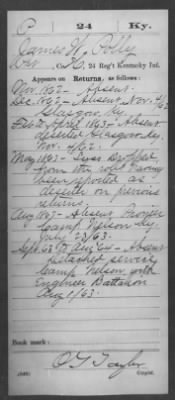 C 24 Ky.
James W. Polly
Co. , 24 Reg't Kentucky Inf.
Appears on Returns, as follows:
Nov. 1862 - Absent.
Dec. 1862 - Absent, Nov. 4/62
Glasgow, Ky.
Feb & April 1863 - Absent
deserted, Glasgow, Ky.
Nov. 4/62.
May 1863 - dropped
from the roll having
been reported as
deserter on previous
returns.
Aug 1863 - Absent
Camp Nelson Ky.
July 23/63.
Sept. 63 to Aug 64 - Absent
detached service
Camp Nelson with
Engineer Battalion
Aug 1/63.
Book mark:
O G Taylor
Copyist.